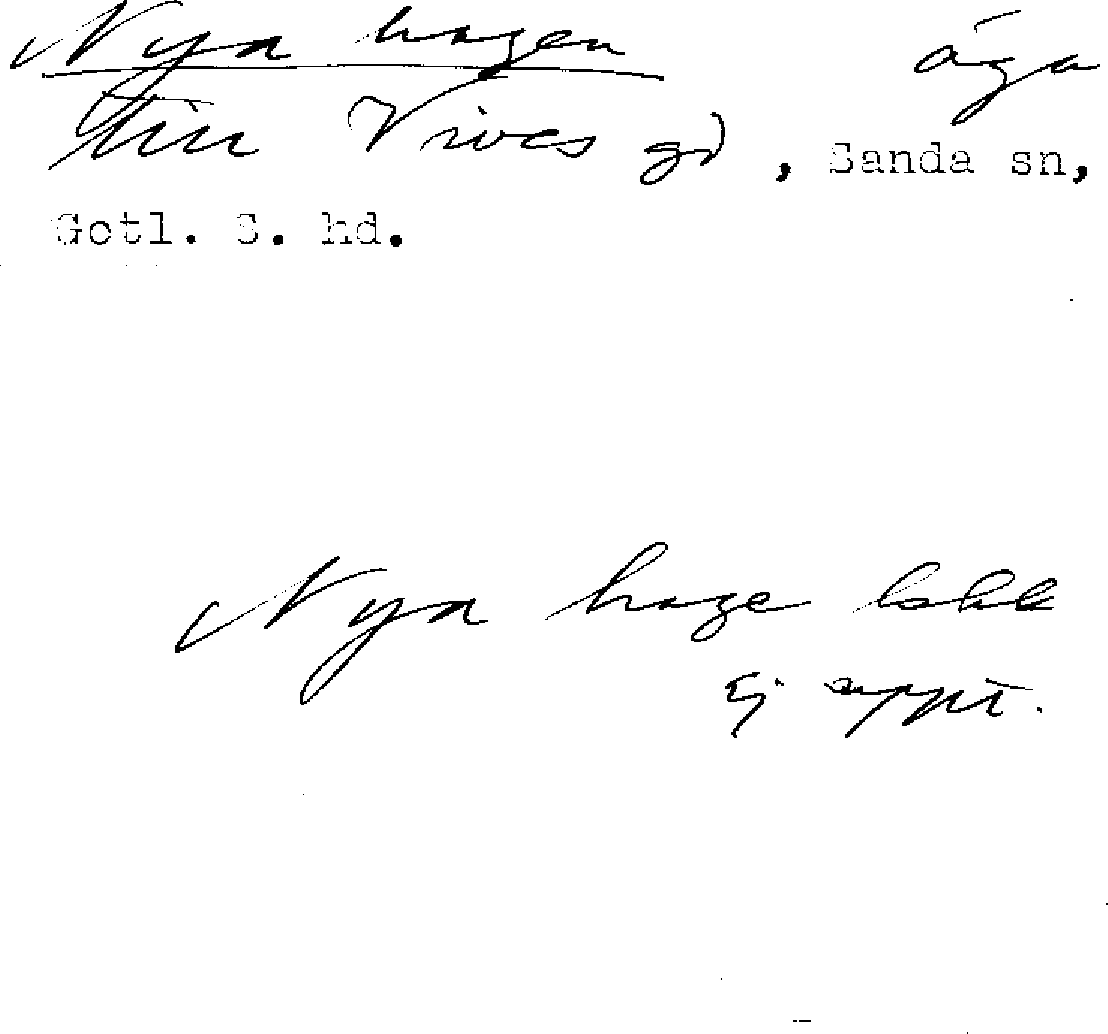 Nya hagen äga
till Vives gd, Sanda sn,
Gotl. S. hd.
Nya hage
Ej uppt.